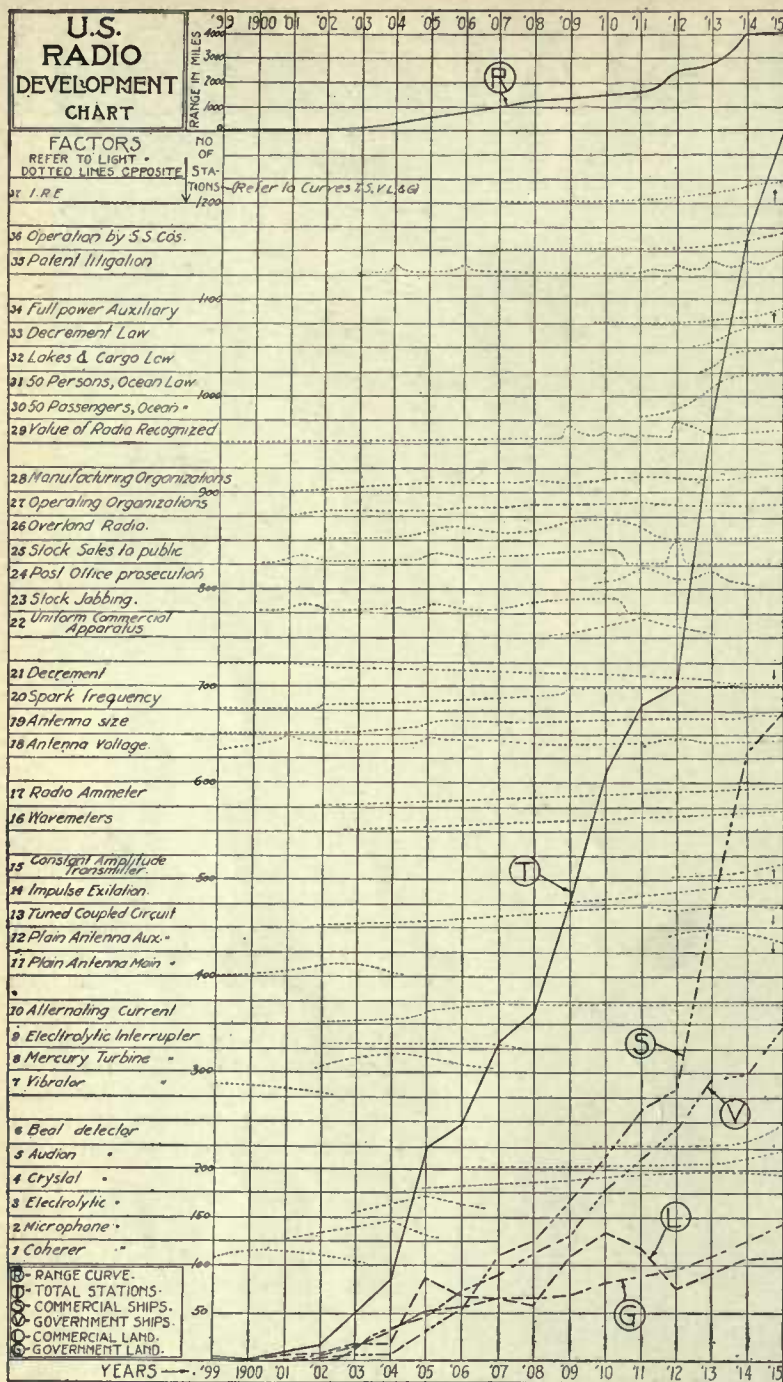 U.S.
RADIO
DEVELOPMENT
CHART
RANGE IN MILES
'99 1900 '01 '02 '03 '04 '05 '06 '07 '08 '09 '10 '11 '12 '13 '14 '15
4000
3000
2000
1000
0
R
FACTORS
REFER TO LIGHT
DOTTED LINES OPPOSITE
NO
OF
STA-
TIONS
(Refer to Curves T.S.V.L.&G)
37 I.R.E
1200
36 Operation by S.S Cos.
35 Patent litigation
1100
34 Full power Auxiliary
33 Decrement Law
32 Lakes & Cargo Law
31 50 Persons, Ocean Law
1000
30 50 Passengers, Ocean "
29 Value of Radio Recognized
28 Manufacturing Organizations
900
27 Operating Organizations
26 Overland Radio.
25 Stock Sales to public
24 Post Office prosecution
800
23 Stock Jobbing.
22 Uniform Commercial
Apparatus
21 Decrement
700
20 Spark frequency
19 Antenna size
18 Antenna Voltage.
600
17 Radio Ammeter
16 Wavemeters
15 Constant Amplitude
Transmitter.
500
T
14 Impulse Exitation.
13 Tuned Coupled Circuit
12 Plain Antenna Aux. "
11 Plain Antenna Main "
400
10 Alternating Current
9 Electrolytic Interrupter
8 Mercury Turbine "
300
7 Vibrator "
S
V
6 Beat detector
5 Audion "
200
4 Crystal "
3 Electrolytic "
150
2 Microphone "
L
1 Coherer "
100
R - RANGE CURVE.
T - TOTAL STATIONS.
S - COMMERCIAL SHIPS.
V - GOVERNMENT SHIPS.
L - COMMERCIAL LAND.
G - GOVERNMENT LAND.
50
G
YEARS '99 1900 '01 '02 '03 '04 '05 '06 '07 '08 '09 '10 '11 '12 '13 '14 '15